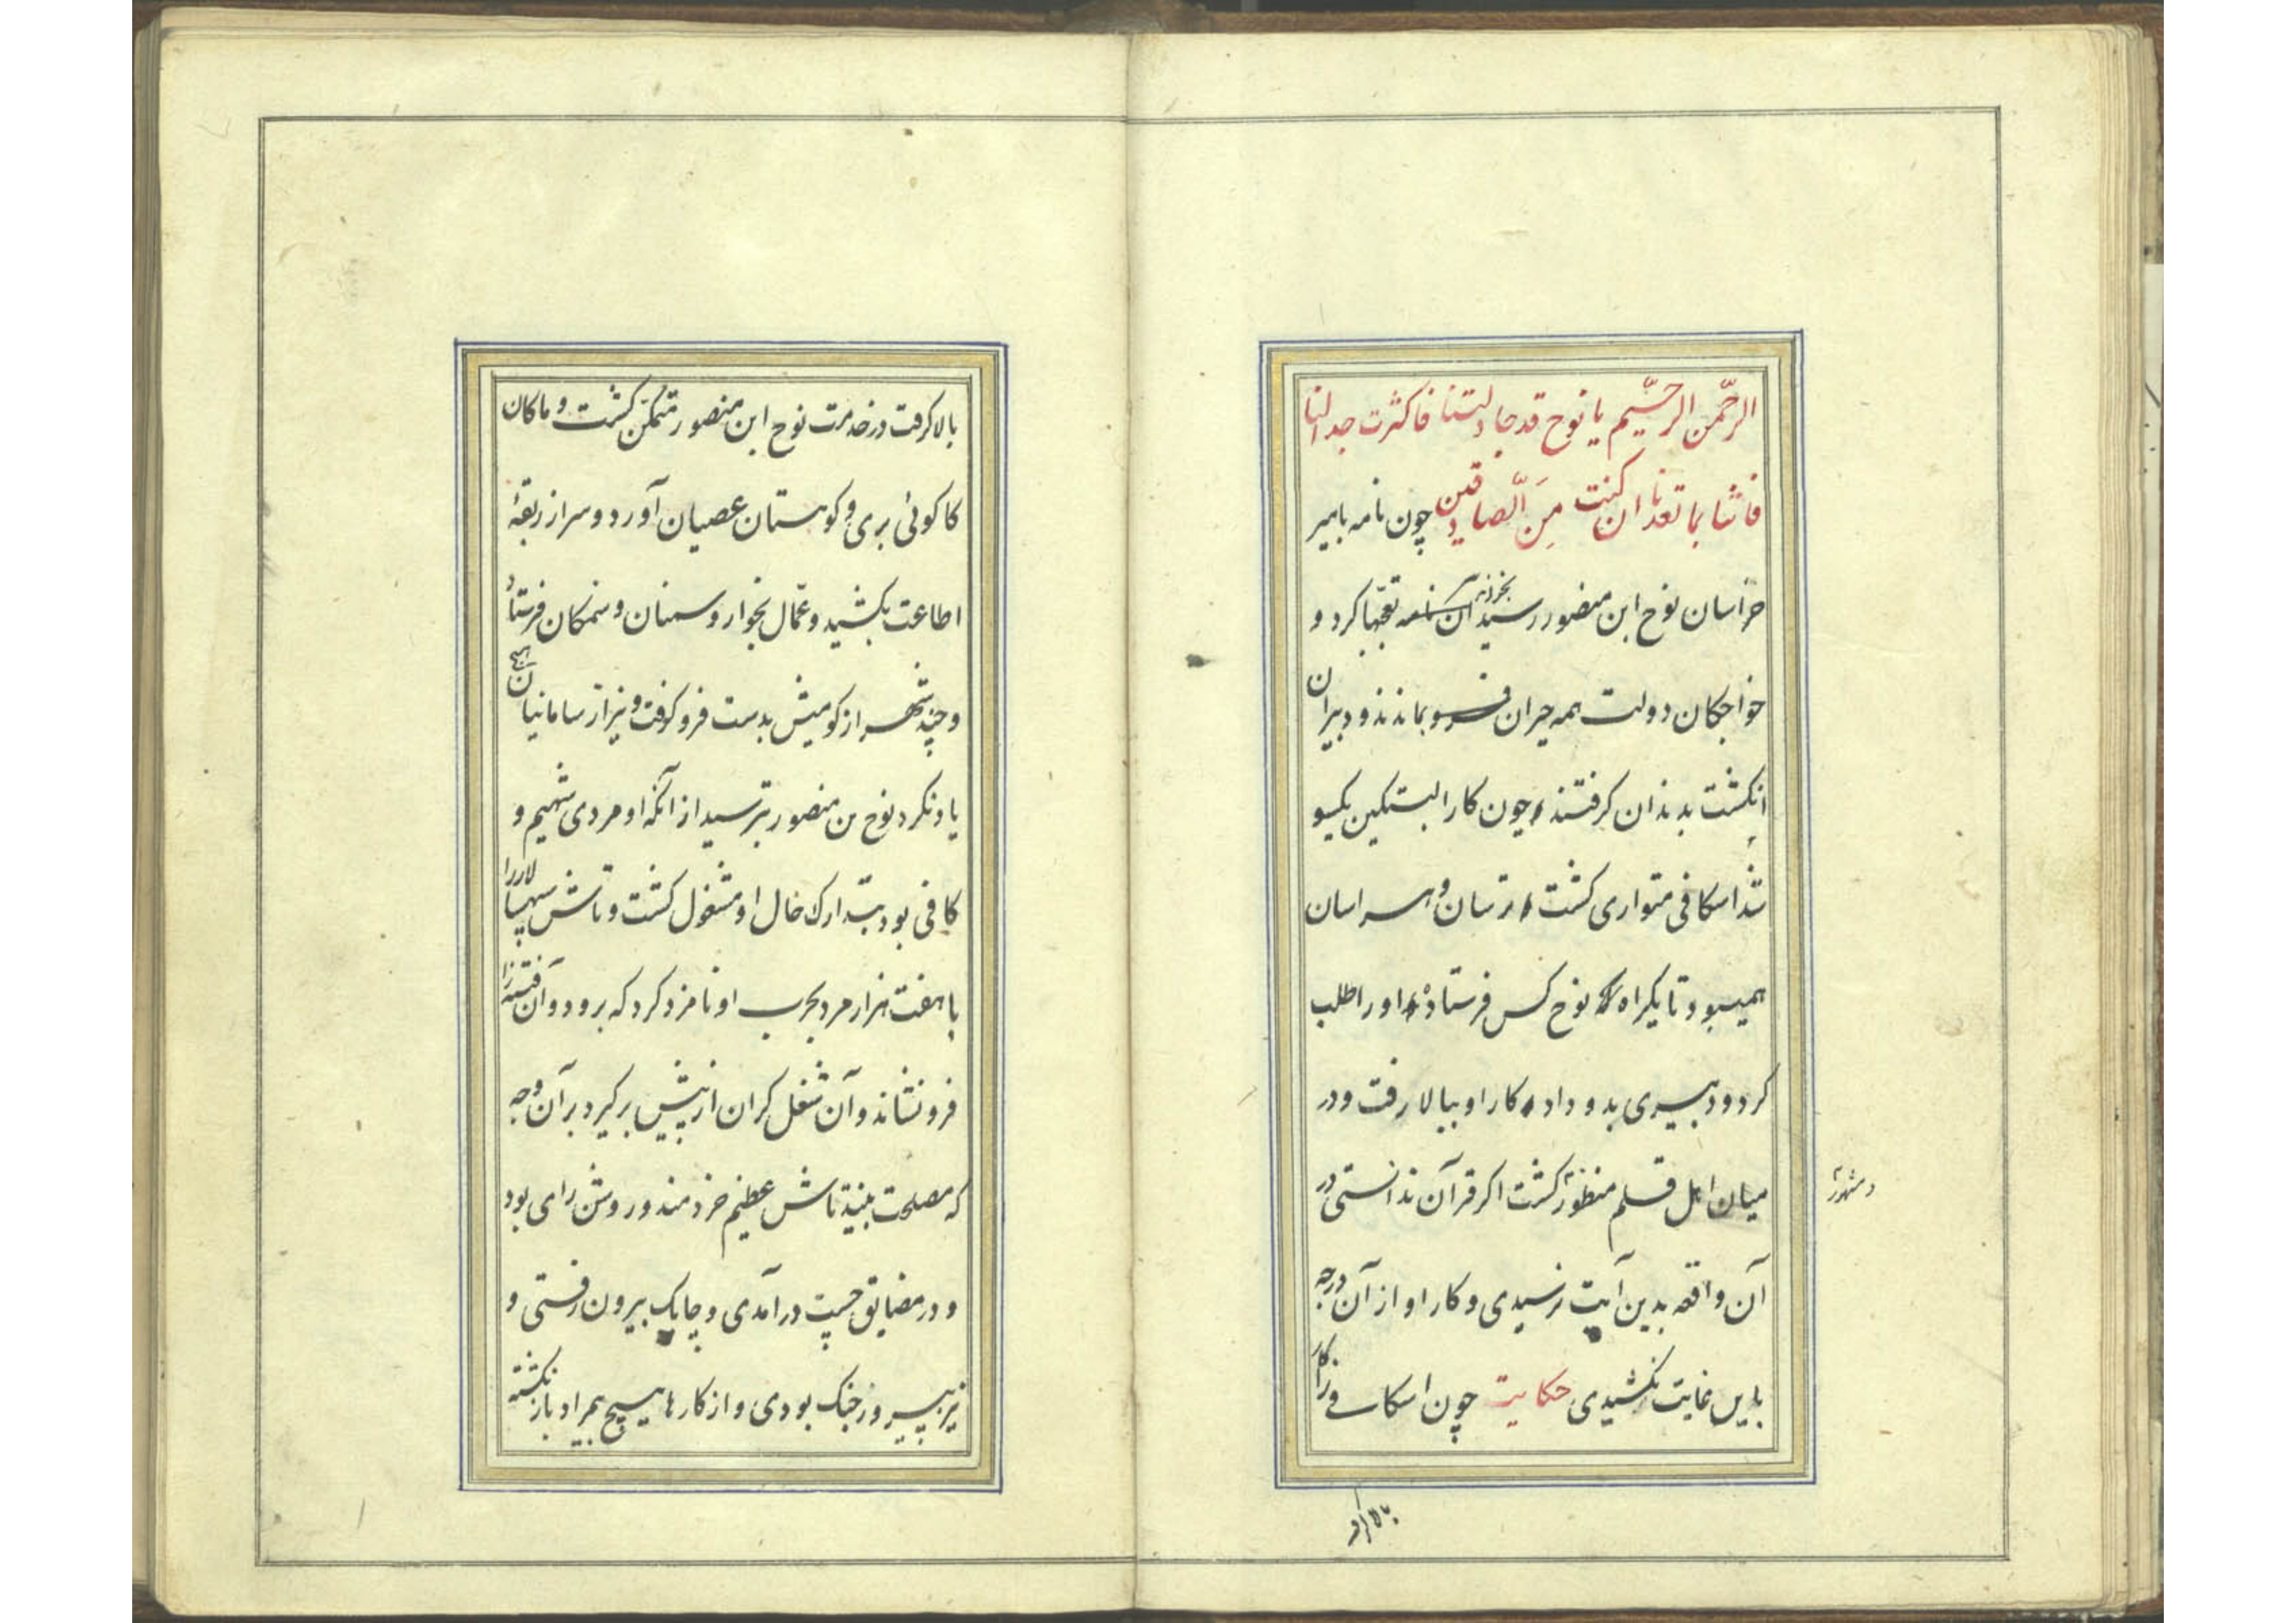 الرحمن الرحیم یا نوح قد جادلتنا فاکثرت جدالنا
فاتنا بما تعدنا ان کنت مِنَ الصادقین چون نامه بامیر
خراسان نوح ابن منصور رسید آن نامه بخواند تعجبها کرد و
خواجکان دولت همه حیران فرو بماندند و دبیران
انکشت بدندان کرفتند چون کار البتکین یکسو
شد اسکافی متواری کشت ترسان و هراسان
همیبود تا یکراه که نوح کس فرستاد و اورا طلب
کرد و دبیری بدو داد کار او ببالا رفت و در
میان اهل قلم منظور کشت اکر قرآن ندانستی در
و مشهور
آن واقعه بدین آیت نرسیدی و کار او از آن درجه
باین غایت نکشیدی حکایت چون اسکافی را کار
بالا کرفت
بالا کرفت و در خدمت نوح ابن منصور متمکن کشت و ماکان
کاکوئی بری و کوهستان عصیان آورد و سر از ربقهٔ
اطاعت بکشید و عمّال بخوار و سمنان و سمنکان فرستاد
و چند شهر از کومیش بدست فرو کرفت و نیز از سامانیان هیچ
یاد نکرد نوح بن منصور بترسید از آنکه او مردی شهیم و
کافی بود بتدارک حال او مشغول کشت و تاش سپهسالار را
با هفت هزار مرد بحرب او نامزد کرد که برود و آن فتنه را
فرو نشاند و آن شغل کران از پیش برکیرد بر آن وجه
که مصلحت بیند تاش عظیم خردمند و روشن رای بود
و در مضایق چست در آمدی و چابک بیرون رفتی و
نیز پیروز جنک بودی و از کارها هیچ بیمراد باز نکشته